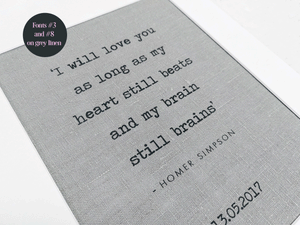 Fonts #3
and #8
on grey linen
'I will love you
as long as my
heart still beats
and my brain
still brains'
- HOMER SIMPSON
13.05.2017